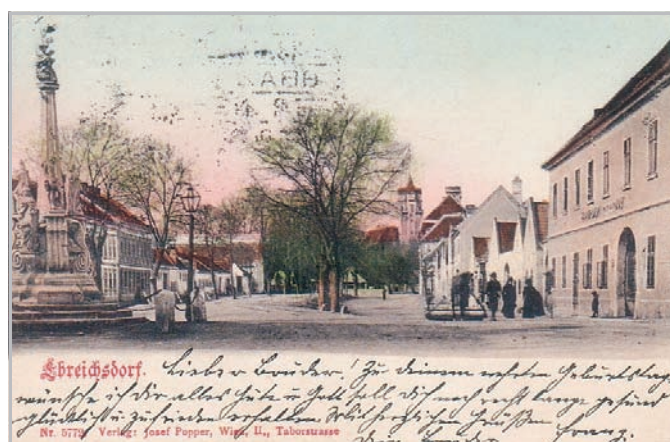 Ebreichsdorf. Lieber Bruder! Zu deinem Geburtstag
wünsche ich dir alles Gute u Gott soll dich noch recht lange gesund
glücklich u zufrieden erhalten Mit herzlichen Grüßen Franz.
Nr. 5779. Verlag: Josef Popper, Wien, II., Taborstrasse
Dein Bruder